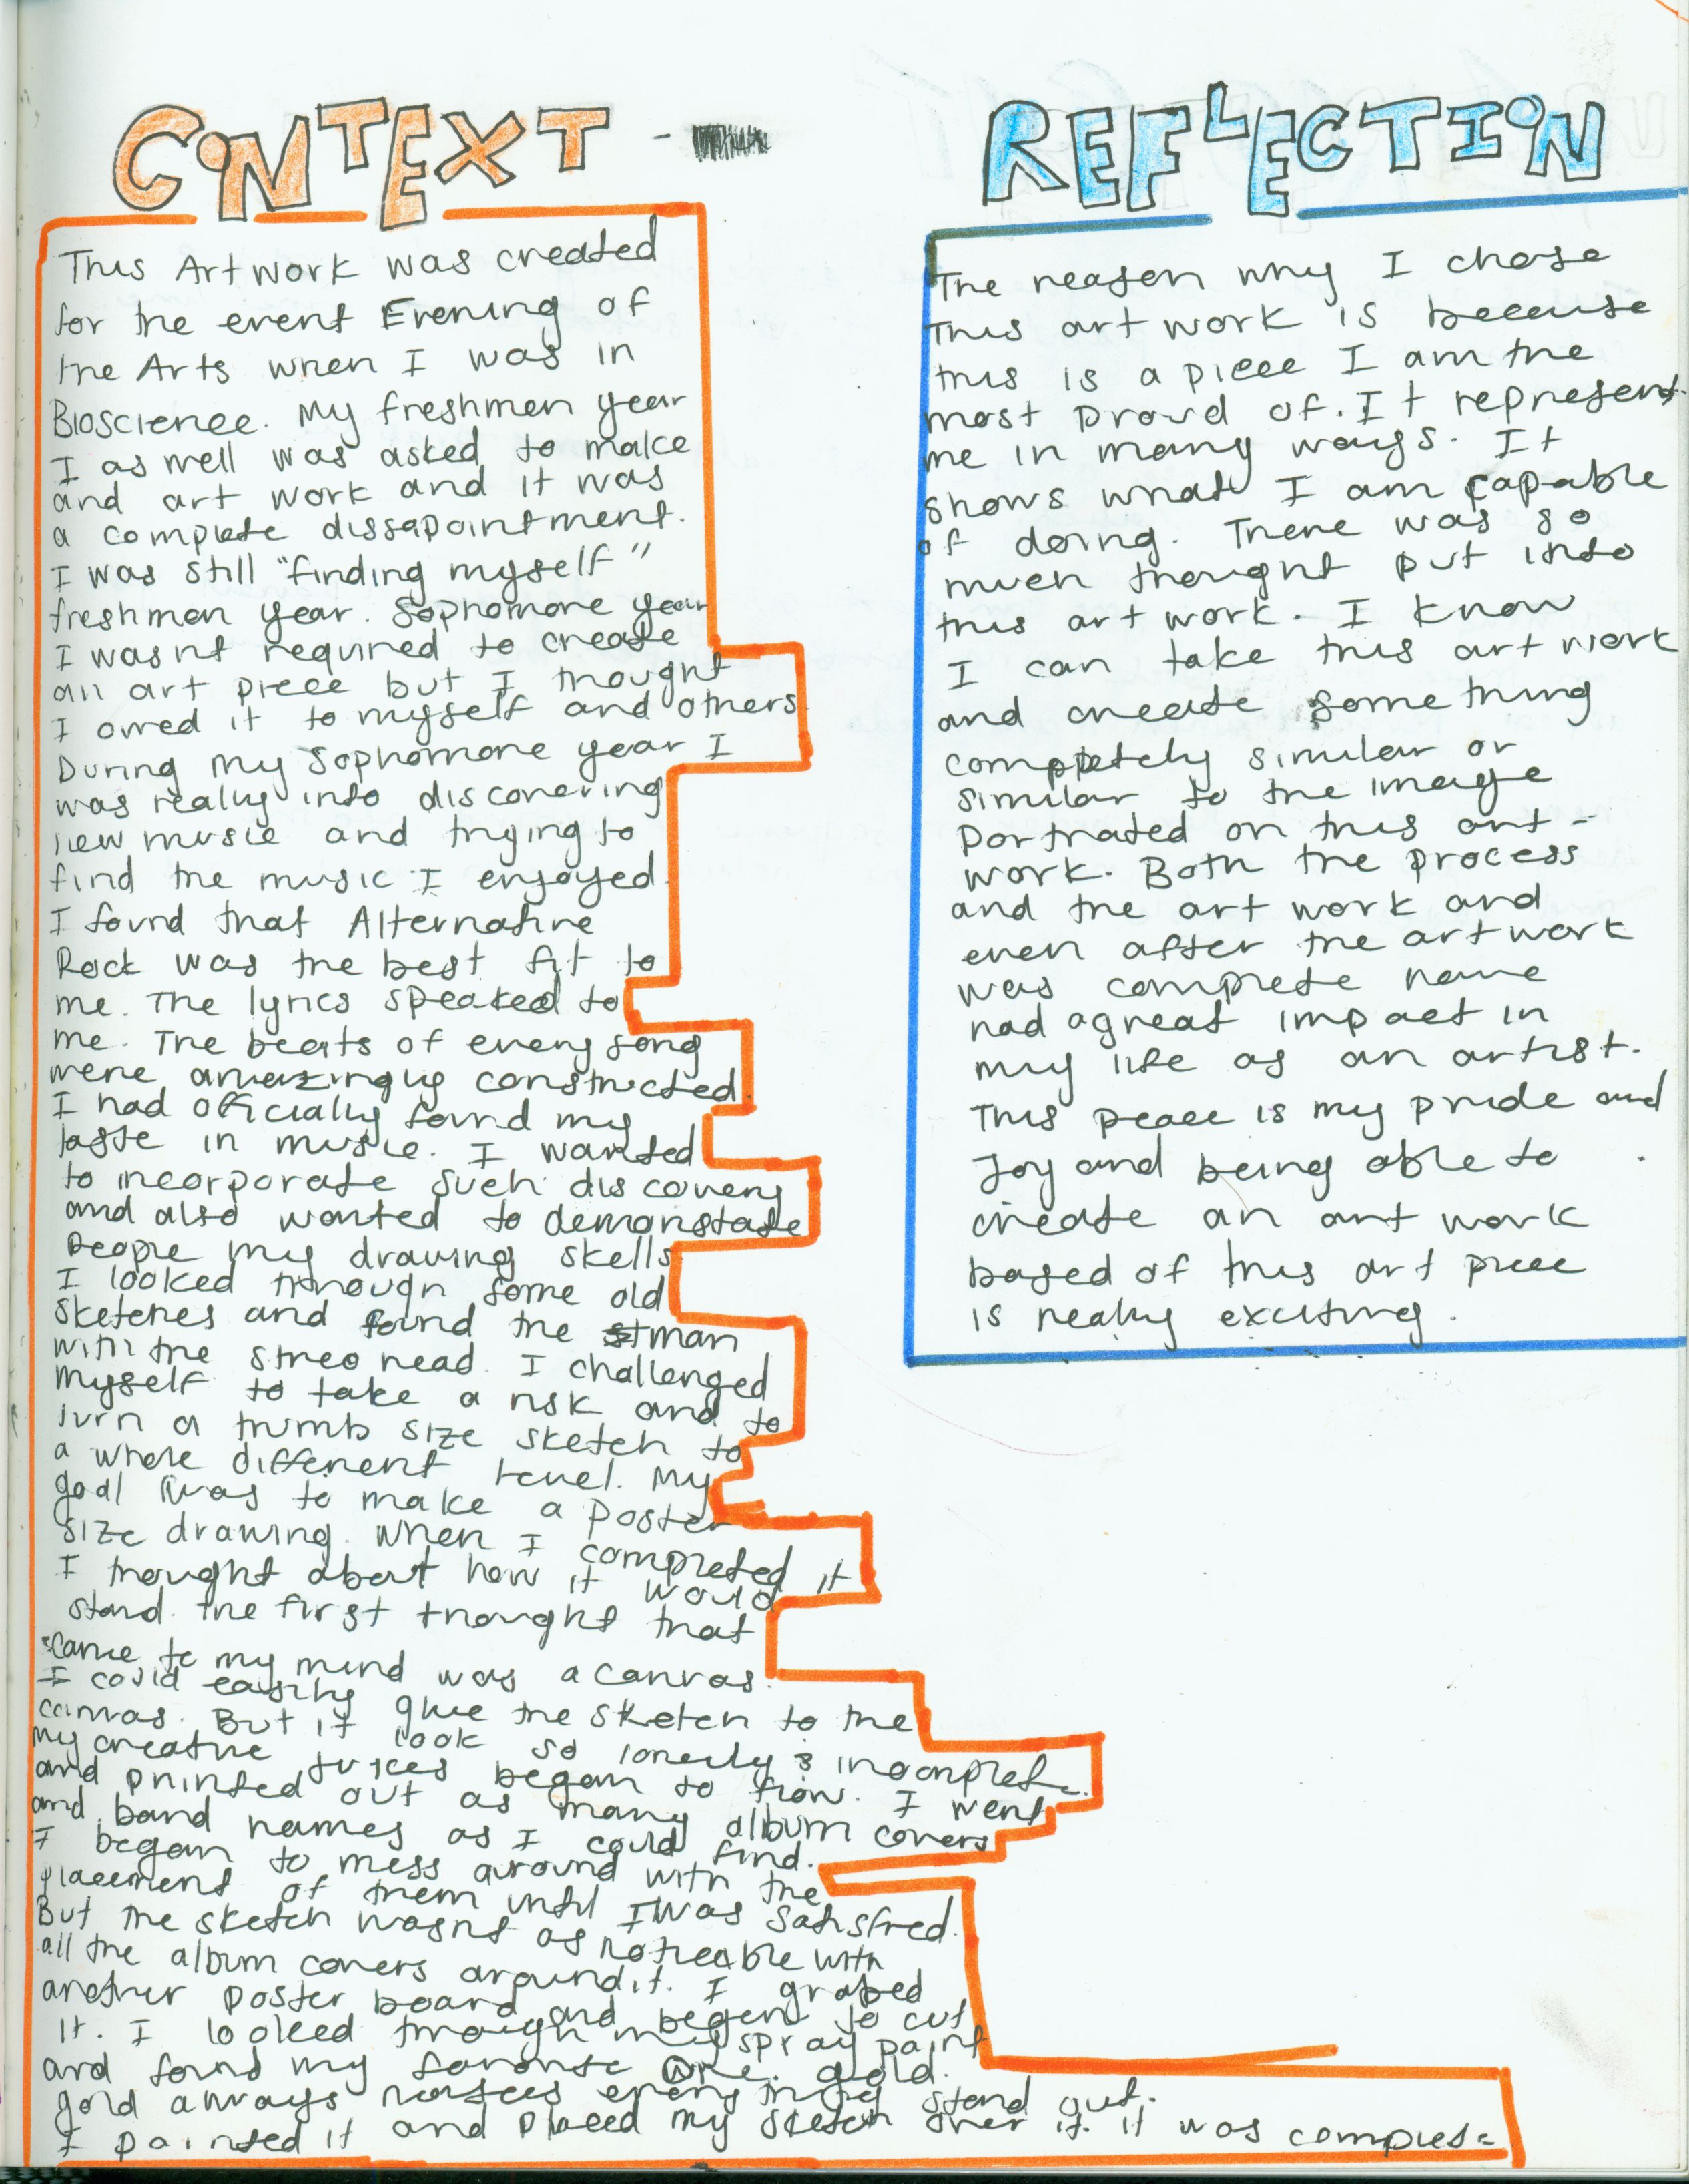 CONTEXT -
This Artwork was created
for the event Evening of
the Arts when I was in
Bioscience. My freshmen year
I as well was asked to make
and art work and it was
a complete dissapointment.
I was still "finding myself"
freshmen year. Sophomore year
I wasnt required to create
an art piece but I thought
I owed it to myself and others.
During my Sophomore year I
was really into discovering
new music and trying to
find the music I enjoyed.
I found that Alternative
Rock was the best fit to
me. The lyrics speaked to
me. The beats of every song
were amazingly constructed.
I had officially found my
taste in music. I wanted
to incorporate such discovery
and also wanted to demonstate
people my drawing skells
I looked through some old
sketches and found the man
with the streo head. I challenged
myself to take a risk and to
turn a thumb size sketch to
a whole different level. My
goal was to make a poster
size drawing. When I completed it
I thought about how it would
stand. The first thought that
came to my mind was a canvas.
I could easily glue the sketch to the
canvas. But it look so lonely & incomplete.
My creative juices began to flow. I went
and printed out as many album covers
and band names as I could find.
I began to mess around with the
placement of them until I was satisfied.
But the sketch wasnt as noticable with
all the album covers around it. I grabed
another poster board and began to cut
it. I looked through my spray paint
and found my favorite one. gold.
gold always makes everything stand out.
I painted it and placed my sketch over it. it was complete
REFLECTION
The reason why I chose
this art work is because
this is a piece I am the
most proud of. It represent
me in many ways. It
shows what I am capable
of doing. There was so
much thought put into
this art work. I know
I can take this art work
and create something
completely similar or
similar to the image
Portrated on this art-
work. Both the process
and the art work and
even after the artwork
was complete have
had a great impact in
my life as an artist.
This peace is my pride and
Joy and being able to
create an art work
based of this art piece
is really exciting.